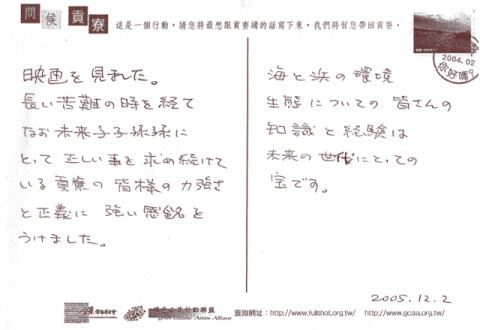 問候貢寮
這是一個行動，請您將最想跟貢寮講的話寫下來，我們將幫您帶回貢寮。
2004.02
你好嗎?
映画を見ました。
長い苦難の時を経て
なお未来子子孫孫に
とって正しい事を求め続けて
いる貢寮の皆様の力強さ
と正義に強い感銘を
うけました。
海と浜の環境
生態についての皆さんの
知識と経験は
未来の世代にとっての
宝です。
2005.12.2
行動聯盟
Action Alliance
查詢網址：http://www.fullshot.org.tw/ http://www.gcaa.org.tw/